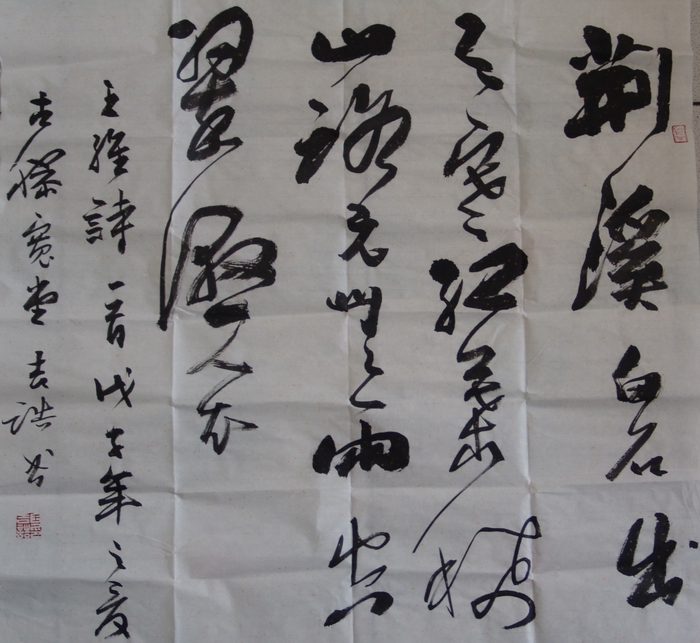 荆溪白石出
天寒紅葉稀
山路元無雨空
翠濕人衣
王維詩一首戊子年之夏
古滕寬堂吉誥书